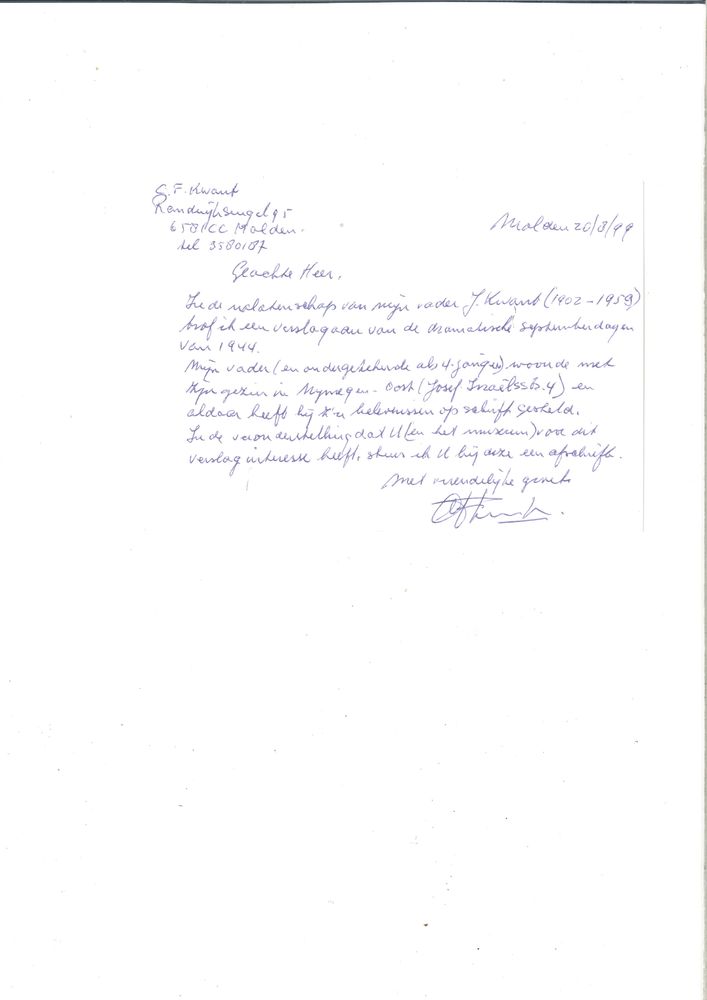 G.F. Kwant
Randwijksingel 95
6581CC Malden.
tel 3580187
Malden 20/8/99
Geachte Heer,
In de nalatenschap van mijn vader J. Kwant (1902-1959)
trof ik een verslag aan van de dramatische septemberdagen
van 1944.
Mijn vader (en ondergetekende als 4-jarige) woonde met
zijn gezin in Nijmegen-Oost (Josef Israëlsstr. 4) en
aldaar heeft hij z'n belevenissen op schrift gesteld.
In de veronderstelling dat U (en het museum) voor dit
verslag interesse heeft, stuur ik U bij deze een afschrift.
Met vriendelijke groet